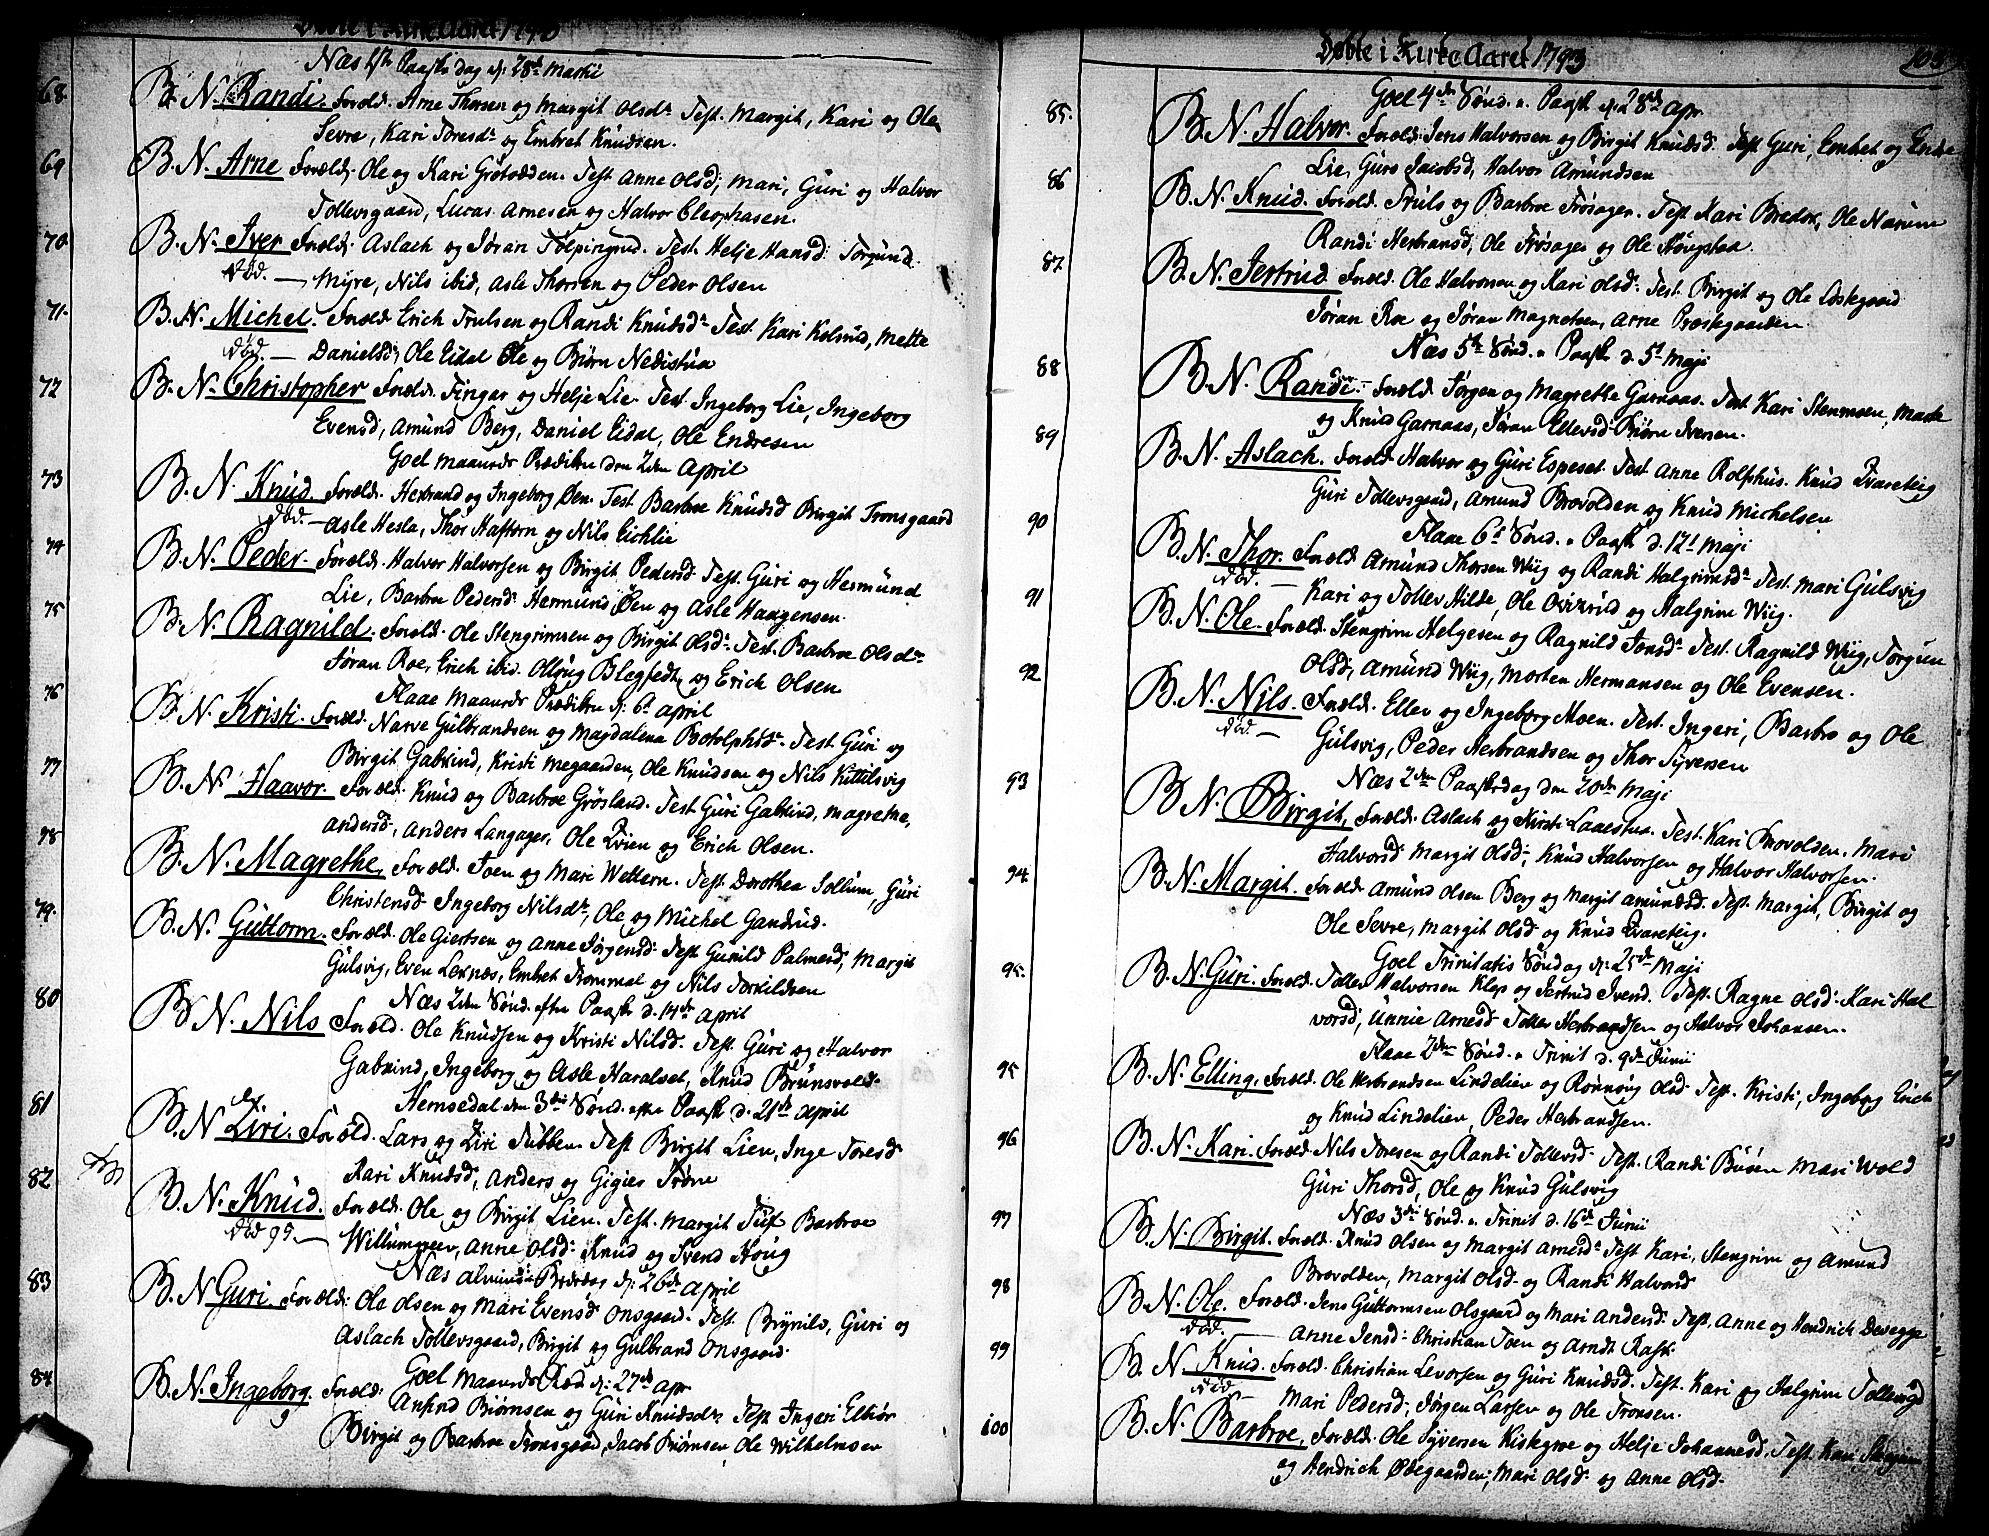 Døbte i Kirke Aaret 1793
Næs 1ste Paaske dag d: 28de Martii
68. B. N. Randi. Foræld. Arne Thorsen og Margit Olsdr. Test. Margit, Kari og Ole
Sevre, Kari Toresdr og Embret Knudsen.
69 B. N. Arne Foræld. Ole og Kari Grøtødden. Test. Anne Olsd, Mari, Guri og Halvor
Tollevsgaard, Lucas Arnesen og Halvor Cleophasen.
70. B. N. Iver Foræld. Aslach og Jøran Tolpingrud. Test. Helje Hansd: Torgund
død. — Myre, Nils ibid, Asle Thorsen og Peder Olsen
71. B. N. Michel. Foræld Erich Trulsen og Randi Knudsdr Test. Kari Kolsrud, Mette
død. — Danielsd, Ole Eidal Ole og Biørn Nedistua
72 B. N. Christopher Foræld. Fingar og Helje Lie. Test. Ingeborg Lie, Ingeborg
Evensd, Amund Berg, Daniel Eidal, Ole Endresen
Goel Maaneds Prædiken den 2den April
73 B. N. Knud Foræld. Herbrand og Ingeborg Øen. Test. Barbroe Knudsd Birgit Tronsgaard
død. — Asle Hesla, Thor Haftorn og Nils Eichlie
74 B. N. Peder. Foræld. Halvor Halvorsen og Birgit Pedersd. Test. Guri og Hermund
Lie, Barbro Pedersd. Hermund Øen og Asle Haagensen.
75 B. N. Ragnild. Foræld. Ole Stengrimsen og Birgit Olsdr. Test. Barbroe Olsdr
Jøran Roe, Erich ibid. Ollrug Blegfedt, og Erich Olsen
Flaae Maaneds Prædiken d: 6te April
76 B. N. Kristi. Foræld. Narve Gulbrandsen og Magdalena Botolphsdr. Test. Guri og
Birgit Gabrind, Kristi Megaarden, Ole Knudsen og Nils Kittilsvig
77 B. N. Haavor. Foræld. Knud og Barbroe Grøsland. Test. Guri Gabrind, Magrethe,
Andersd, Anders Langager, Ole Ivien og Erich Olsen.
78 B. N. Magrethe, Foræld. Joen og Mari Wettern. Test. Dorothea Sollum, Guri
Christensd. Ingeborg Nilsdr, Ole og Michel Gandrud.
79. B. N. Guttorm. Foræld. Ole Giertsen og Anne Jørgensd. Test. Gunild Palmesd, Margit
Gulsvig, Even Lexnæs, Embret Trommal og Nils Torkildsen
Næs 2den Sønd. efter Paask d. 14de April
80 B. N. Nils Foræld. Ole Knudsen og Kristi Nilsd. Test. Guri og Halvor
Gabrind, Ingeborg og Asle Haralset, Knud Brunsvold.
Hemsedal den 3die Sønd. efter Paask d. 21de April
81 B. N. Ziri. Foræld. Lars og Ziri Tubben. Test Birgit Lien, Inge Toresd
Kari Knudsd, Anders og Gigier Trøne
82 B. N. Knud. Foræld. Ole og Birgit Lien. Test. Margit Tuf Barbroe
død 95. — Willummeer, Anne Olsd. Knud og Svend Houg
Næs almind: Bededag d: 26de April
83 B. N. Guri Foræld: Ole Olsen og Mari Evensd Onsgaard. Test. Brynild, Guri og
Aslach Tollevsgaard, Birgit og Gulbrand Onsgaard.
Goel Maaneds Præd d: 27de Apr
84 B. N. Ingeborg. Foræld: Anfind Biørnsen og Guri Knudsdr. Test Ingeri Eltiør
Birgit og Barbroe Tronsgaard, Jacob Biørnsen, Ole Wilhelmsen
Døbte i Kirke Aaret 1793
Goel 4de Sønd. e. Paask d: 28de Apr
85. B. N. Halvor. Foræld. Jens Halvorsen og Birgit Knudsd. Test. Guri, Embret og Endre
Lie, Guro Jacobsd, Halvor Amundsen
86 B. N. Knud. Foræld. Truls og Barbroe Frøsager. Test. Kari Bredor, Ole Narum
Randi Herbransd, Ole Frøsager og Ole Houghaa
87. B. N. Jertrud Foræld. Ole Halvorsen og Kari Olsd. Test. Birgit og Ole Lostegaard
Jøran Roe og Jøran Magnetsen, Arne Præstegaarden.
Næs 5te Sønd. e. Paask d. 5te Maji
88 B. N. Randi. Foræld. Jørgen og Magrethe Garnaas. Test. Kari Stenmoen, Marte
og Knud Garnaas, Jøran Ellevsd. Biørn Iversen.
89 B. N. Aslach. Foræld. Halvor og Guri Espeset. Test. Anne Rolphus. Knud Tvareteig
Guri Tollevsgaard, Amund Brovolden og Knud Michelsen
Flaae 6te Sønd. e. Paask d. 12te Maji
90 B. N. Thor. Foræld. Amund Thorsen Wiig og Randi Halgrimsdr Test. Mari Gulsvig
død. — Kari og Tollev Hilde, Ole Ovizrud og Halgrim Wiig.
91 B. N. Ole. Foræld. Stengrim Helgesen og Ragnild Jonsdr. Test. Ragnild Wiig, Torgun
Olsd, Amund Wiig, Morten Hermansen og Ole Evensen.
92 B. N. Nils. Foræld. Ellev og Ingeborg Moen. Test. Ingeri, Barbro og Ole
død. — Gulsvig, Peder Herbrandsen og Thor Syversen
Næs 2den Paaskedag den 20de Maji
93 B. N. Birgit, Foræld. Aslach og Kirsti Laaestua. Test. Kari Brovolden. Mari
Halvorsd. Margit Olsd, Knud Halvorsen og Halvor Halvorsen.
94. B. N. Margit. Foræld. Amund Olsen Berg og Margit Amundsd. Test. Margit, Birgit og
Ole Sevre, Margit Olsd og Knud Tvareteig.
Goel Trinitatis Søndag d: 25de Maji
95. B. N. Guri. Foræld. Tollev Halvorsen Klep og Jertrud Ivend. Test. Ragne Olsd. Kari Hal
vorsd, Unnie Arnesd Tollev Herbrandsen og Halvor Johansen.
Flaae 2den Sønd. e. Trinit d. 9de Junii
95 B. N. Elling, Foræld. Ole Herbrandsen Lindelien og Rønnoug Olsd. Test. Kristi, Ingeborg Erich
og Knud Lindelien, Peder Herbrandsen.
96 B. N. Kari. Foræld. Nils Toresen og Randi Tollevsd. Test. Randi Buøen Mari Wold
Guri Thorsd, Ole og Knud Gulsvig
Næs 3die Sønd. e. Trinit d. 16de Junii
97 B. N. Birgit. Foræld. Knud Olsen og Margit Arnesdr. Test. Kari, Stengrim og Amund
Brovolden, Margit Olsd og Randi Halvorsd
98 B. N. Ole. Foræld. Jens Guttormsen Olsgaard og Mari Andersd. Test. Anne og Hendrich Devegge
død. — Anne Jensd. Christian Joen og Arndt Rask
99 B. N. Knud. Foræld. Christian Levorsen og Guri Knudsd. Test. Kari og Halgrim Tollevsgd
død — Mari Pedersd, Jørgen Larsen og Ole Tronsen.
100 B. N. Barbroe, Foræld. Ole Syversen Kirkegroe og Helje Johannesd. Test. Kari
og Hendrich Ødegaarden, Mari Olsd. og Anne Olsd.